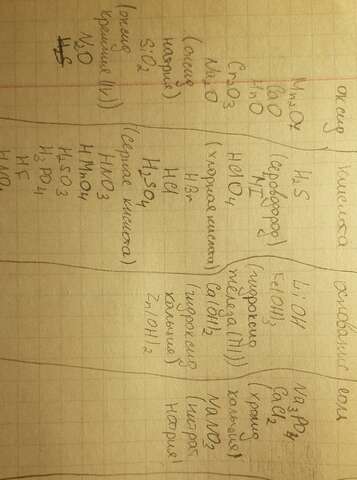 оксид
Mn2O7
CaO
MnO
Cr2O3
Na2O
(оксид
натрия)
SiO2
(оксид
кремния (IV))
N2O
кислота
H2S
(сероводород)
HI
HClO4
(хлорная кислота)
HBr
HCl
H2SO4
(серная кислота)
HNO3
HMnO4
H2SO3
H3PO4
HF
основание
LiOH
Fe(OH)3
(гидроксид
железа (III))
Ca(OH)2
(гидроксид
кальция)
Zn(OH)2
соли
Na3PO4
CaCl2
(хлорид
кальция)
NaNO3
(нитрат
натрия)